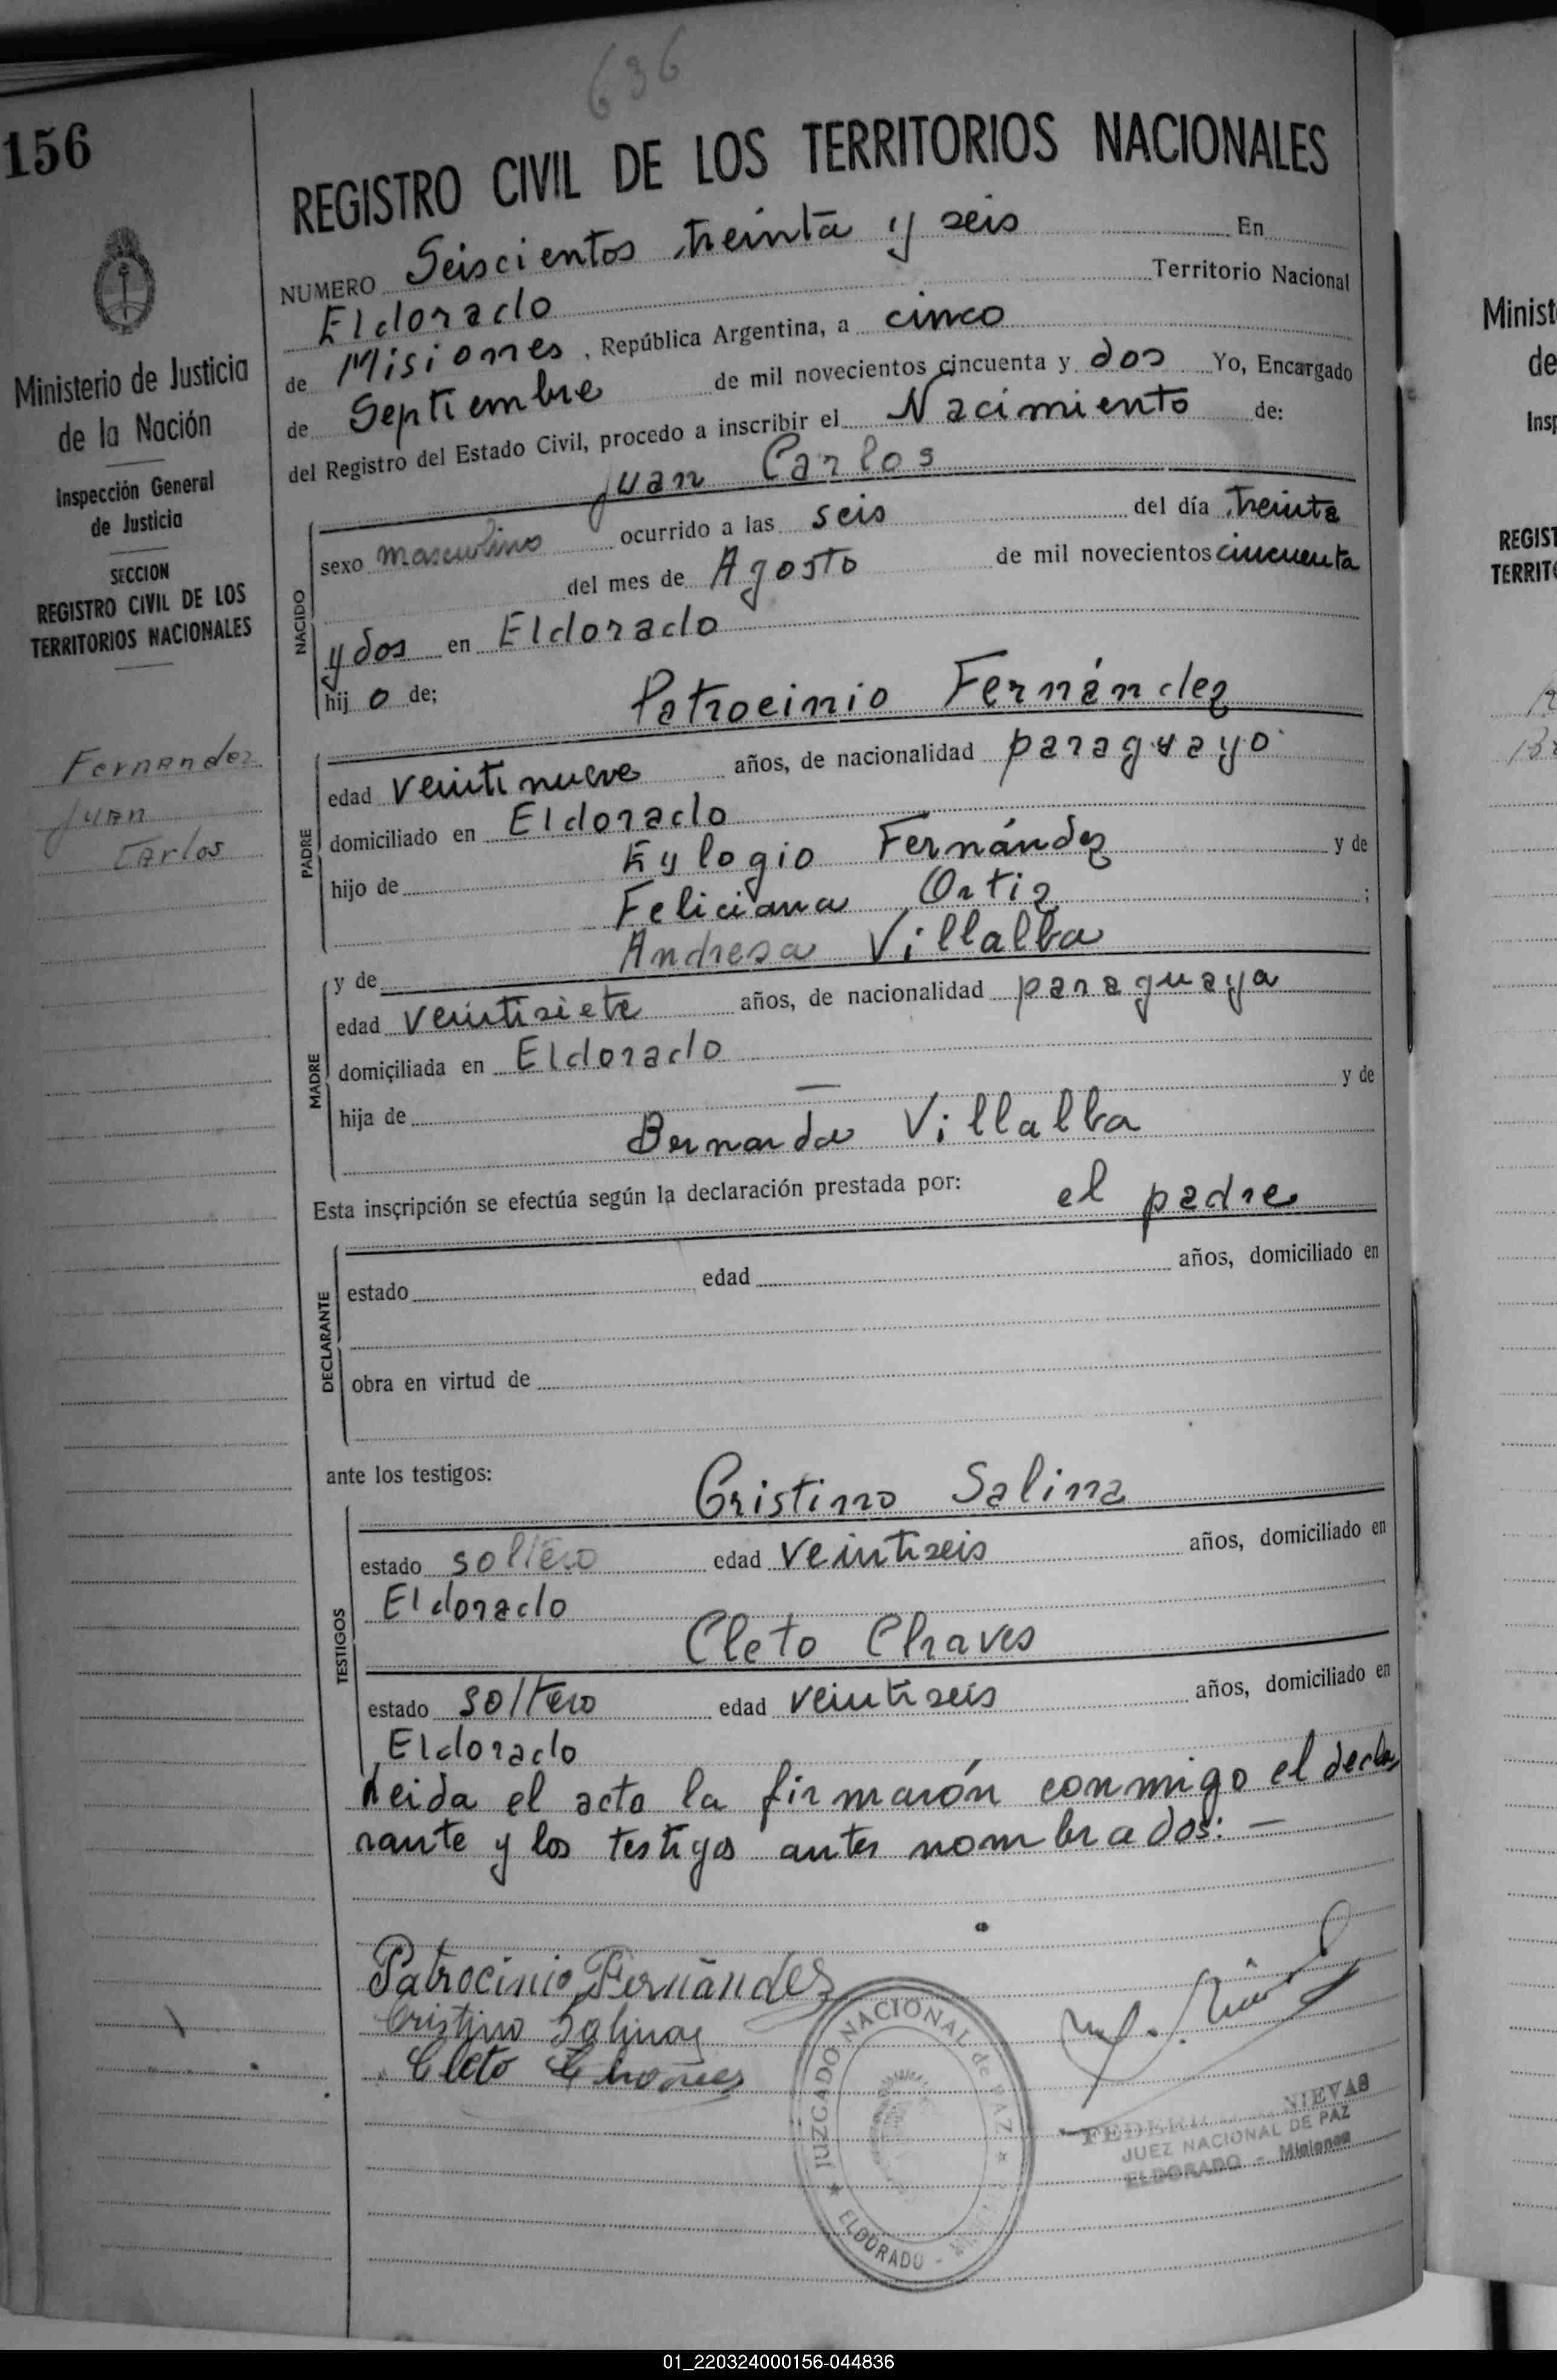 636
156
REGISTRO CIVIL DE LOS TERRITORIOS NACIONALES
NUMERO Seiscientos treinta y seis En
Eldorado Territorio Nacional
de Misiones , República Argentina, a cinco
de Septiembre de mil novecientos cincuenta y dos Yo, Encargado
del Registro del Estado Civil, procedo a inscribir el Nacimiento de:
Juan Carlos
NACIDO
sexo masculino ocurrido a las seis del día treinta
del mes de Agosto de mil novecientos cincuenta
y dos en Eldorado
hij o de; Patrocinio Fernández
PADRE
edad veintinueve años, de nacionalidad paraguayo
domiciliado en Eldorado
hijo de Eulogio Fernández y de
Feliciana Ortiz ;
y de Andresa Villalba
MADRE
edad veintisiete años, de nacionalidad paraguaya
domiciliada en Eldorado
hija de — y de
Bernarda Villalba
Esta inscripción se efectúa según la declaración prestada por: el padre
DECLARANTE
estado edad años, domiciliado en
obra en virtud de
ante los testigos: Cristino Salina
TESTIGOS
estado soltero edad veintiseis años, domiciliado en
Eldorado
Cleto Chaves
estado soltero edad veintiseis años, domiciliado en
Eldorado
Leida el acta la firmarón conmigo el decla
rante y los testigos antes nombrados: —
Patrocinio Fernández
Cristino Salinas
Cleto Chaves
JUZGADO NACIONAL de PAZ
ELDORADO -
NIEVAS
JUEZ NACIONAL DE PAZ
ELDORADO - Misiones
Ministerio de Justicia
de la Nación
Inspección General
de Justicia
SECCION
REGISTRO CIVIL DE LOS
TERRITORIOS NACIONALES
Fernandez
Juan
Carlos
Minist
de
Insp
REGIST
TERRITO
01_220324000156-044836